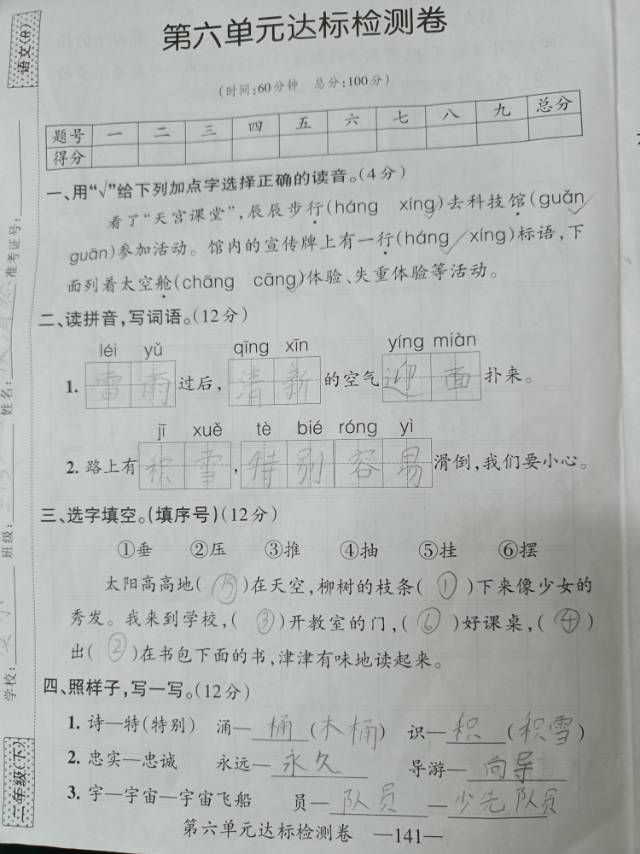 语文(R)
第六单元达标检测卷
(时间:60分钟 总分:100分)
题号 一 二 三 四 五 六 七 八 九 总分
得分
一、用“√”给下列加点字选择正确的读音。(4分)
看了“天宫课堂”,辰辰步行(háng xíng)去科技馆(guǎn
guān)参加活动。馆内的宣传牌上有一行(háng xíng)标语,下
面列着太空舱(chāng cāng)体验、失重体验等活动。
二、读拼音,写词语。(12分)
léi yǔ qīng xīn yíng miàn
1. 雷雨过后,清新的空气迎面扑来。
jī xuě tè bié róng yì
2. 路上有积雪,特别容易滑倒,我们要小心。
三、选字填空。(填序号)(12分)
①垂 ②压 ③推 ④抽 ⑤挂 ⑥摆
太阳高高地(⑤)在天空,柳树的枝条(①)下来像少女的
秀发。我来到学校,(③)开教室的门,(⑥)好课桌,(④)
出(②)在书包下面的书,津津有味地读起来。
四、照样子,写一写。(12分)
1. 诗—特(特别) 涌—桶(木桶) 识—积(积雪)
2. 忠实—忠诚 永远—永久 导游—向导
3. 宇—宇宙—宇宙飞船 员—队员—少先队员
第六单元达标检测卷 —141—
准考证号:
姓名:
班级:
学校:
二年级(下)